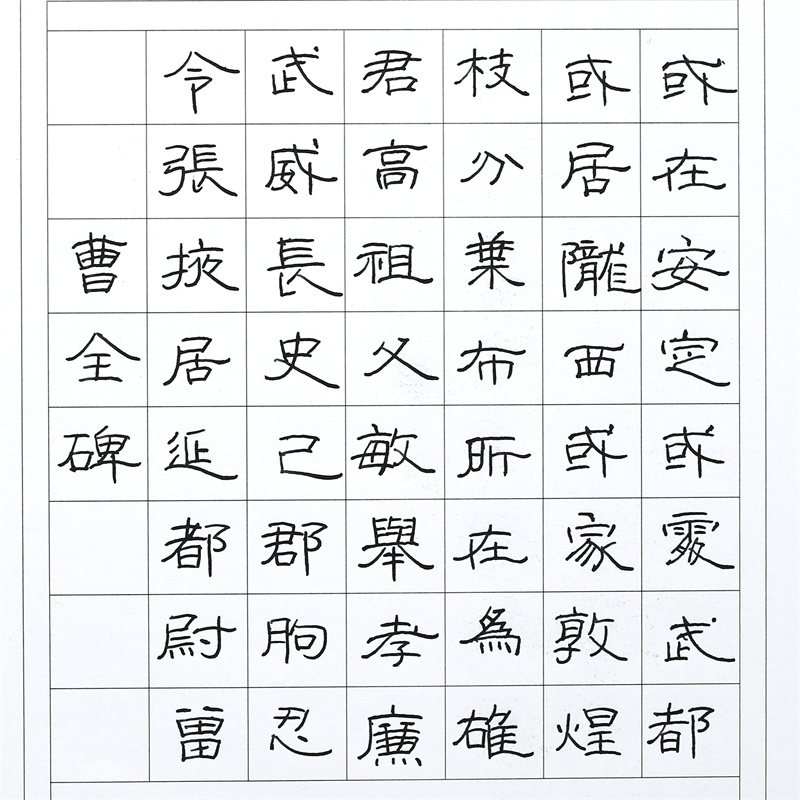 或在安定或處武都
或居隴西或家敦煌
枝分葉布所在爲雄
君高祖父敏舉孝廉
武威長史己郡朐忍
令張掖居延都尉曾
曹全碑